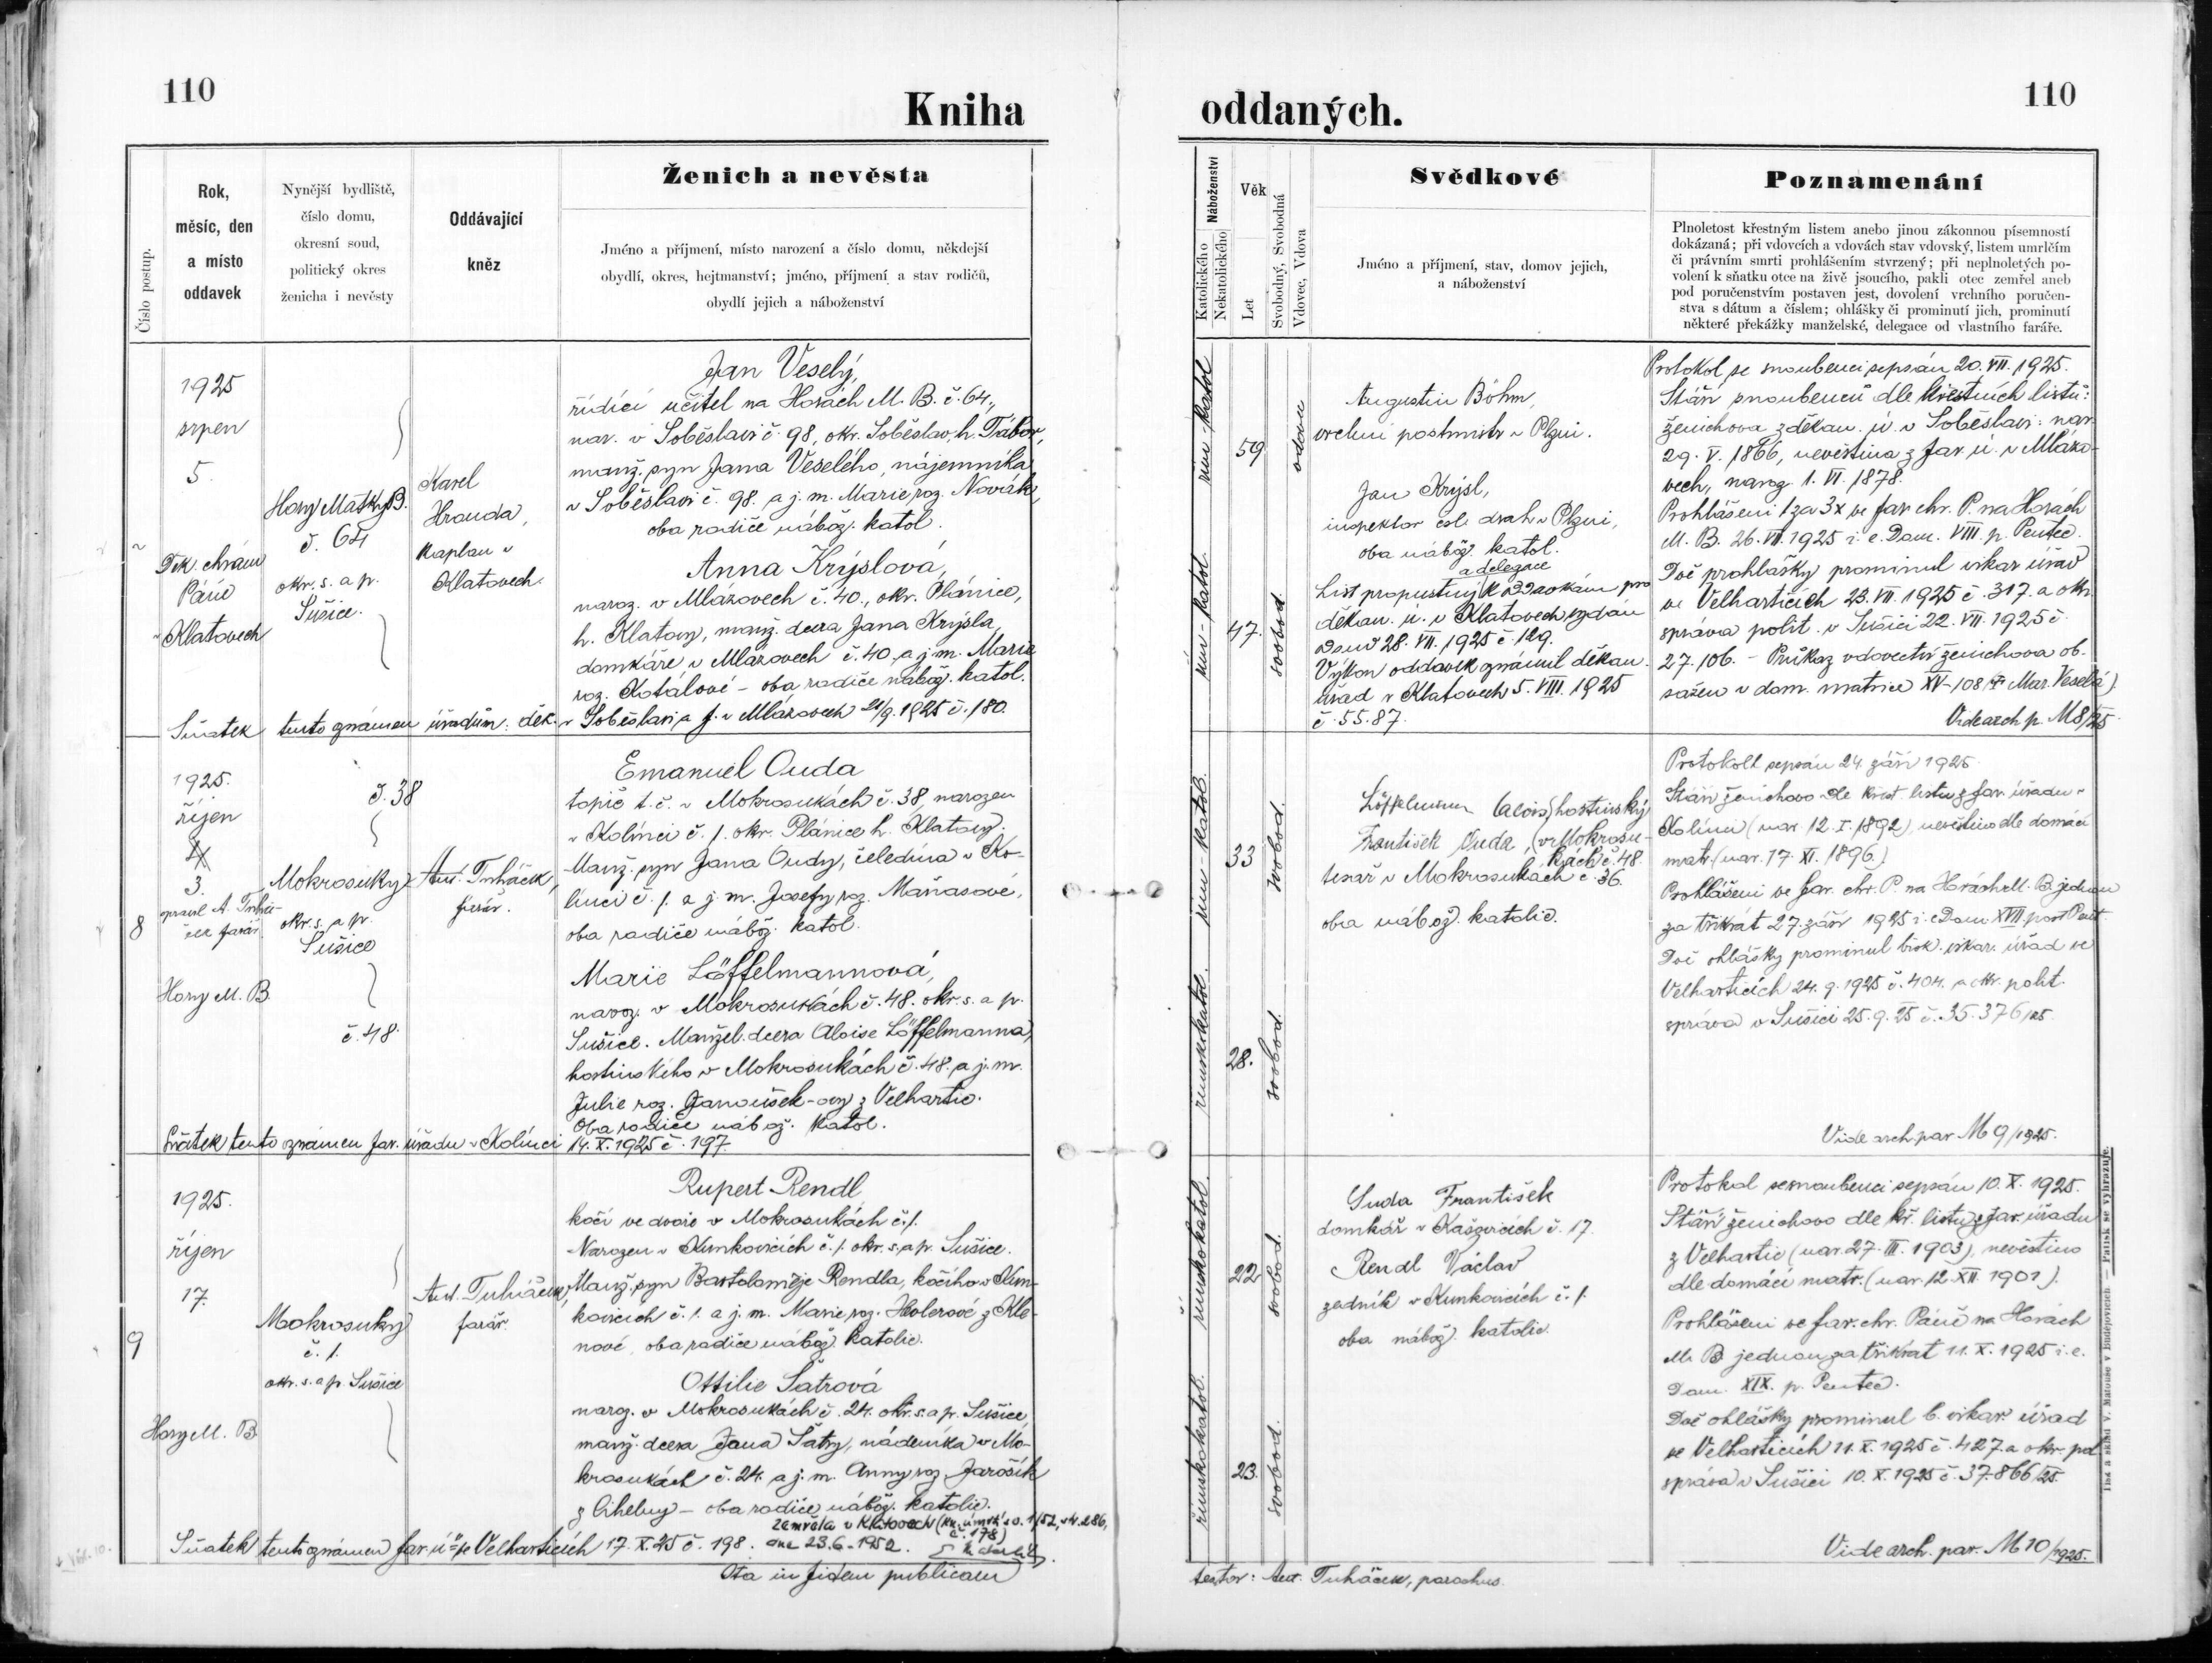 110
Kniha
Číslo postup.
Rok,
měsíc, den
a místo
oddavek
Nynější bydliště,
číslo domu,
okresní soud,
politický okres
ženicha i nevěsty
Oddávající
kněz
Ženich a nevěsta
Jméno a příjmení, místo narození a číslo domu, někdejší
obydlí, okres, hejtmanství; jméno, příjmení a stav rodičů,
obydlí jejich a náboženství
1925
srpen
5.
Děk. chrám
Páně
v Klatovech
Hory Matky B.
č. 64
okr. s. a p.
Sušice.
Karel
Hrauda,
kaplan v
Klatovech.
Jan Veselý,
řídící učitel na Horách M. B. č. 64.,
nar. v Soběslavi č. 98, okr. Soběslav, h. Tábor,
manž. syn Jana Veselého, nájemníka
v Soběslavi č. 98. a j. m. Marie roz. Novák,
oba rodiče nábož. katol.
Anna Krýslová,
naroz. v Mlázovech č. 40., okr. Plánice,
h. Klatovy, manž. dcera Jana Krýsla,
domkáře v Mlázovech č. 40. a j. m. Marie
roz. Kotálové – oba rodiče nábož. katol.
Sňatek tento oznámen úřadům: děk. v Soběslavi a f. v Mlázovech 21/9. 1925 č. 180.
8
1925.
říjen
3.
opravil A. Tuháček
farář.
Hory M. B.
č. 38
Mokrosuky
okr. s. a p.
Sušice
č. 48.
Ant. Tuháček,
farář.
Emanuel Ouda
topič t. č. v Mokrosukách č. 38, narozen
v Kolínci č. 1. okr. Plánice h. Klatovy.
Manž. syn Jana Oudy, čeledína v Ko-
línci č. 1. a j. m. Josefy roz. Maňasové,
oba rodiče nábož. katol.
Marie Löffelmannová,
naroz. v Mokrosukách č. 48. okr. s. a p.
Sušice. Manžel. dcera Aloise Löffelmanna,
hostinského v Mokrosukách č. 48. a j. m.
Julie roz. Janoušek-ovy z Velhartic.
Oba rodiče nábož. katol.
Sňatek tento oznámen far. úřadu v Kolínci 14. X. 1925 č. 197.
9
1925.
říjen
17.
Hory M. B.
Mokrosuky
č. 1.
okr. s. a p. Sušice
Ant. Tuháček,
farář.
Rupert Rendl
kočí ve dvoře v Mokrosukách č. 1.
Narozen v Kunkovicích č. 1. okr. s. a p. Sušice.
Manž. syn Bartoloměje Rendla, kočího v Kun-
kovicích č. 1. a j. m. Marie roz. Holerové z Kle-
nové, oba rodiče nábož. katolic.
Ottilie Šatrová
naroz. v Mokrosukách č. 24. okr. s. a p. Sušice,
manž. dcera Jana Šatry, nádeníka v Mo-
krosukách č. 24. a j. m. Anny roz. Jarošík
z Cihelny – oba rodiče nábož. katolic.
zemřela v Klatovech (kn. úmrtí so. 1/52, str. 286,
č. 178)
dne 23.6.1952.
Sňatek tento oznámen far. ú. ve Velharticích 17. X. 25 č. 198.
Ita in fidem publicam
110
oddaných.
Náboženství
Katolického
Nekatolického
Věk
Let
Svobodný, Svobodná
Vdovec, Vdova
Svědkové
Jméno a příjmení, stav, domov jejich,
a náboženství
Poznamenání
Plnoletost křestným listem anebo jinou zákonnou písemností
dokázaná; při vdovcích a vdovách stav vdovský, listem umrlčím
či právním smrti prohlášením stvrzený; při neplnoletých po-
volení k sňatku otce na živě jsoucího, pakli otec zemřel aneb
pod poručenstvím postaven jest, dovolení vrchního poručen-
stva s dátum a číslem; ohlášky či prominutí jich, prominutí
některé překážky manželské, delegace od vlastního faráře.
řím. katol
59
vdovec
řím-katol.
47.
svobod.
Augustin Böhm,
vrchní poštmistr v Plzni.
Jan Krýsl,
inspektor čsl. drah v Plzni,
oba nábož. katol.
a delegace
List propustný k oddavkám pro
děkan. ú. v Klatovech vydán
28. VII. 1925 č. 129.
Výkon oddavek oznámil děkan.
úřad v Klatovech 5. VIII. 1925
č. 55.87.
Protokol se snoubenci sepsán 20. VII. 1925.
Stáří snoubenců dle křestních listů:
ženichova z děkan. ú. v Soběslavi: nar.
29. V. 1866, nevěstina z far. ú. v Mlázo-
vech, naroz. 1. VI. 1878.
Prohlášeni 1 za 3x ve far. chr. P. na Horách
M. B. 26. VII. 1925 i. e. Dom. VIII. p. Pentec.
Dvě prohlášky prominul vikar. úřad
ve Velharticích 23. VII. 1925 č. 317. a okr.
správa polit. v Sušici 22. VII. 1925 č.
27.106. – Průkaz vdovectví ženichova ob-
sažen v dom. matrice XV-108 († Mar. Veselá)
Vide arch. p. M8/25.
řím-katol.
33
svobod.
římskokatol.
28.
svobod.
Löffelmann Alois, hostinský
v Mokrosu-
kách č. 48.
František Ouda,
tesař v Mokrosukách č. 36.
oba nábož. katolic.
Protokoll sepsán 24. září 1925
Stáří ženichovo dle křest. listu z far. úřadu v
Kolínci (nar. 12. I. 1892), nevěstino dle domácí
matr. (nar. 17. XI. 1896.)
Prohlášeni ve far. chr. P. na Horách M. B. jednou
za třikrát 27. září 1925 i. e. Dom. XVII. post Pent.
Dvě ohlášky prominul bisk. vikar. úřad ve
Velharticích 24. 9. 1925 č. 404. a okr. polit.
správa v Sušici 25. 9. 25 č. 35.376/25.
Vide arch. par. M 9/1925.
římskokatol.
22
svobod.
římskokatol.
23.
svobod.
Suda František
domkář v Kašovicích č. 17.
Rendl Václav
zedník v Kunkovicích č. 1.
oba nábož. katolic.
Protokol se snoubenci sepsán 10. X. 1925.
Stáří ženichovo dle kř. listu z far. úřadu
z Velhartic (nar. 27. III. 1903), nevěstino
dle domácí matr. (nar. 12. XII. 1901).
Prohlášeni ve far. chr. Páně na Horách
M. B. jednou za třikrát 11. X. 1925 i. e.
Dom. XIX. p. Pentec.
Dvě ohlášky prominul b. vikar. úřad
ve Velharticích 11. X. 1925 č. 427. a okr. pol
správa v Sušici 10. X. 1925 č. 37.866/25.
Vide arch. par. M 10/1925.
testor: Ant. Tuháček, parochus.
Tisk a sklad V. Matouše v Budějovicích — Patisk se vyhrazuje.